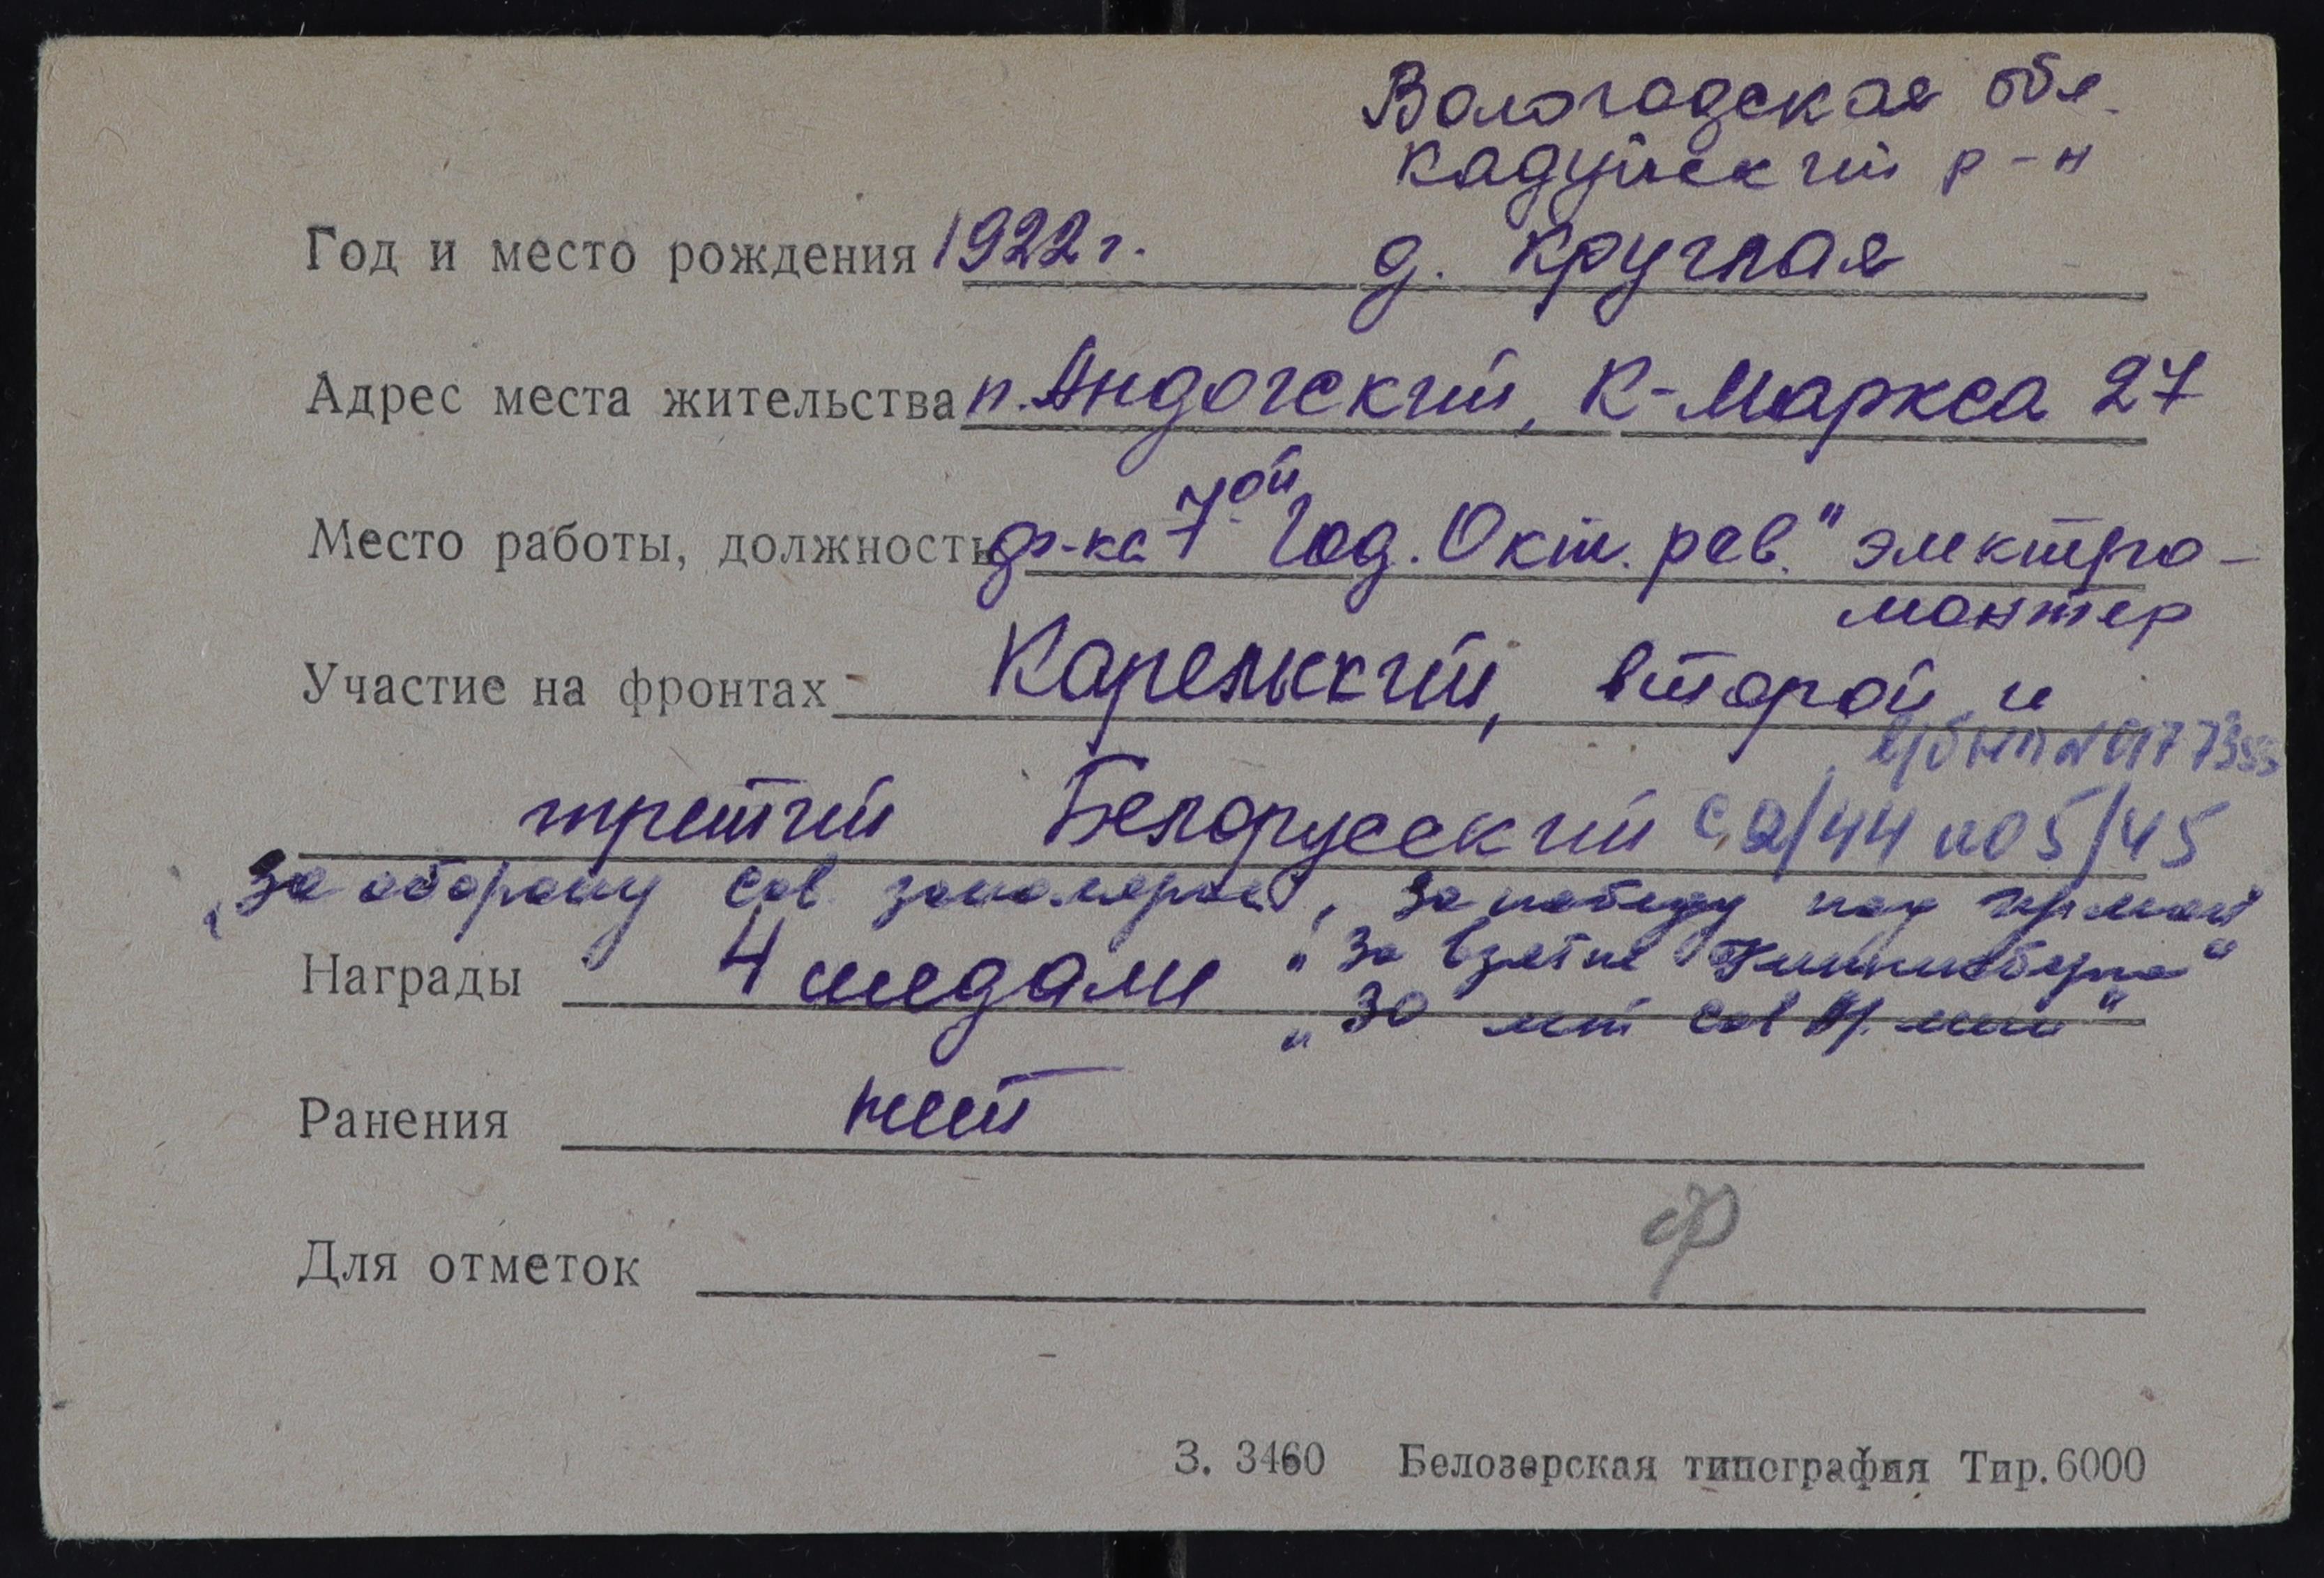 Вологодская обл.
Кадуйский р-н
Год и место рождения 1922 г. д. Круглая
Адрес места жительства п. Андогский, К-Маркса 27
Место работы, должность ф-ка 7ой Год. Окт. рев." электро-
монтер
Участие на фронтах Карельский, второй и
третий Белорусский с 2/44 по 5/45
"За оборону Сов. заполярья", За победу над Герман"
Награды 4 медали "За взятие Кенигсберга"
"30 лет Сов Армии"
Ранения нет
Для отметок ф
З. 3460 Белозерская типография Тир. 6000